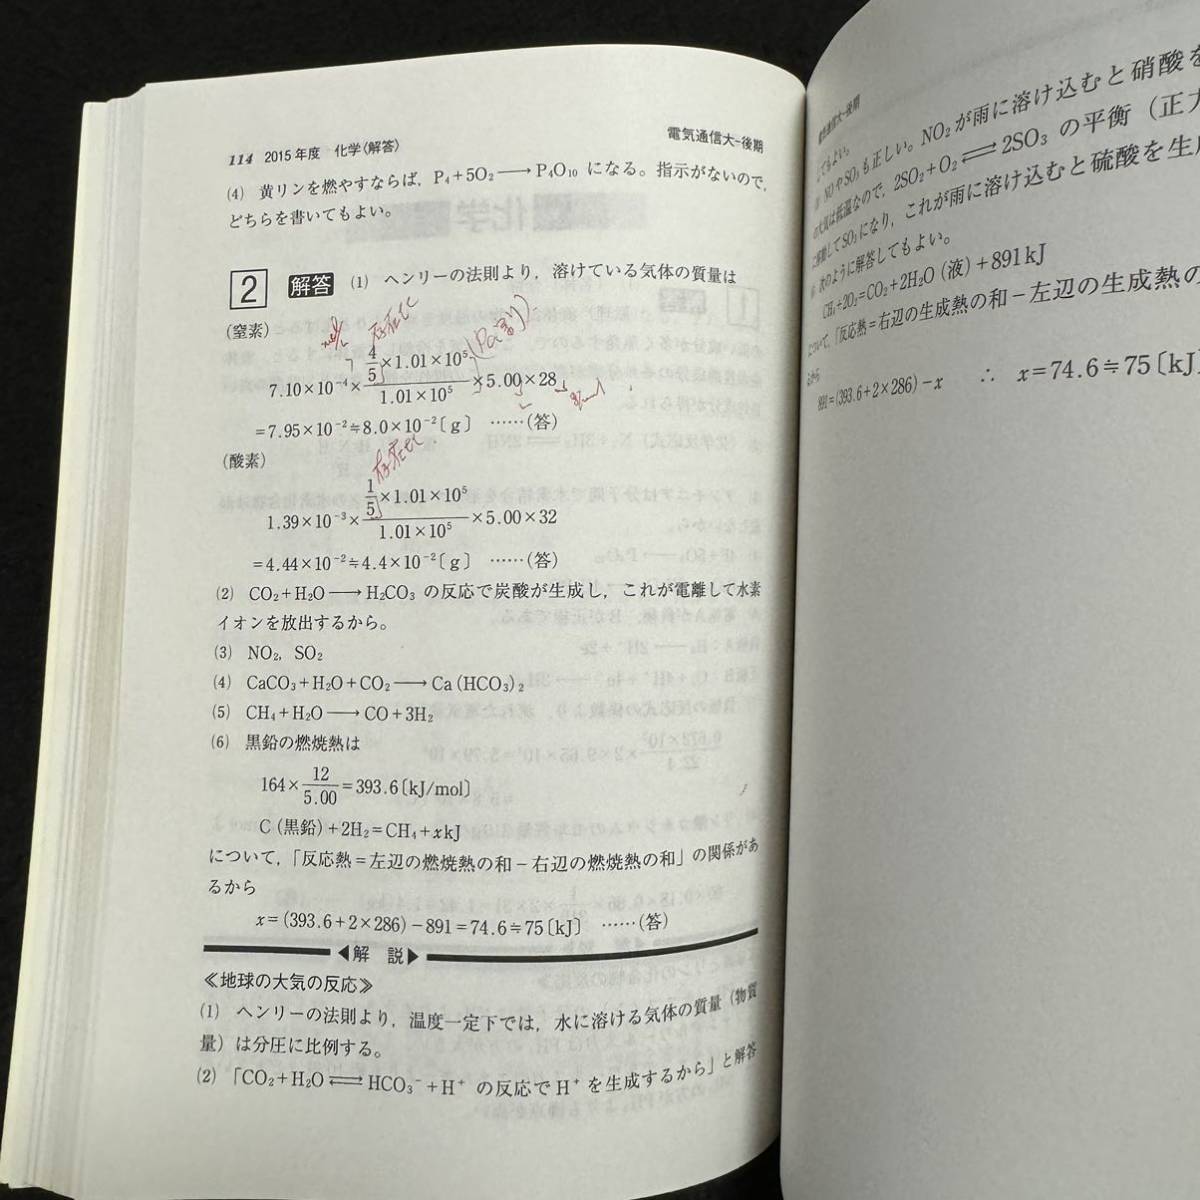 114 2015年度 化学〈解答〉
電気通信大-後期
(4) 黄リンを燃やすならば，P₄+5O₂ ⟶ P₄O₁₀ になる。指示がないので，
どちらを書いてもよい。
2 解答 (1) ヘンリーの法則より，溶けている気体の質量は
(窒素)
mol/L 存在比 (Paより)
7.10×10⁻⁴× (4/5×1.01×10⁵)/(1.01×10⁵) ×5.00×28
=7.95×10⁻²≒8.0×10⁻²〔g〕 ……(答)
(酸素)
存在比
1.39×10⁻³× (1/5×1.01×10⁵)/(1.01×10⁵) ×5.00×32
=4.44×10⁻²≒4.4×10⁻²〔g〕 ……(答)
(2) CO₂+H₂O ⟶ H₂CO₃ の反応で炭酸が生成し，これが電離して水素
イオンを放出するから。
(3) NO₂，SO₂
(4) CaCO₃+H₂O+CO₂ ⟶ Ca(HCO₃)₂
(5) CH₄+H₂O ⟶ CO+3H₂
(6) 黒鉛の燃焼熱は
164×12/5.00=393.6〔kJ/mol〕
C(黒鉛)+2H₂=CH₄+xkJ
について，「反応熱=左辺の燃焼熱の和-右辺の燃焼熱の和」の関係があ
るから
x=(393.6+2×286)-891=74.6≒75〔kJ〕 ……(答)
◀解 説▶
≪地球の大気の反応≫
(1) ヘンリーの法則より，温度一定下では，水に溶ける気体の質量(物質
量)は分圧に比例する。
(2) 「CO₂+H₂O ⇄ HCO₃⁻+H⁺ の反応で H⁺ を生成するから」と解答
電気通信大-後期
してもよい。
NOやSO₃も正しい。NO₂が雨に溶け込むと硝酸を
の大気は低温なので，2SO₂+O₂ ⇄ 2SO₃ の平衡（正
してSO₃になり，これが雨に溶け込むと硫酸を生
次のように解答してもよい。
CH₄+2O₂=CO₂+2H₂O(液)+891kJ
について，「反応熱=右辺の生成熱の和-左辺の生成熱の
るから
891=(393.6+2×286)-x ∴ x=74.6≒75〔kJ〕